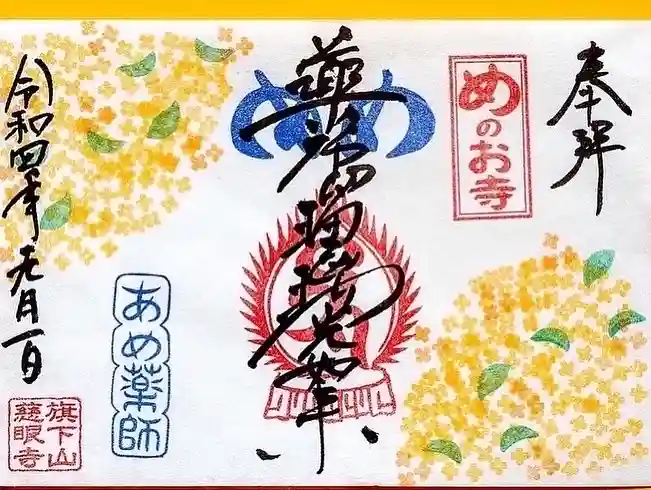 奉拝
めのお寺
め め
薬師瑠璃光如来
あめ薬師
令和四年元月一日
旗下山
慈眼寺